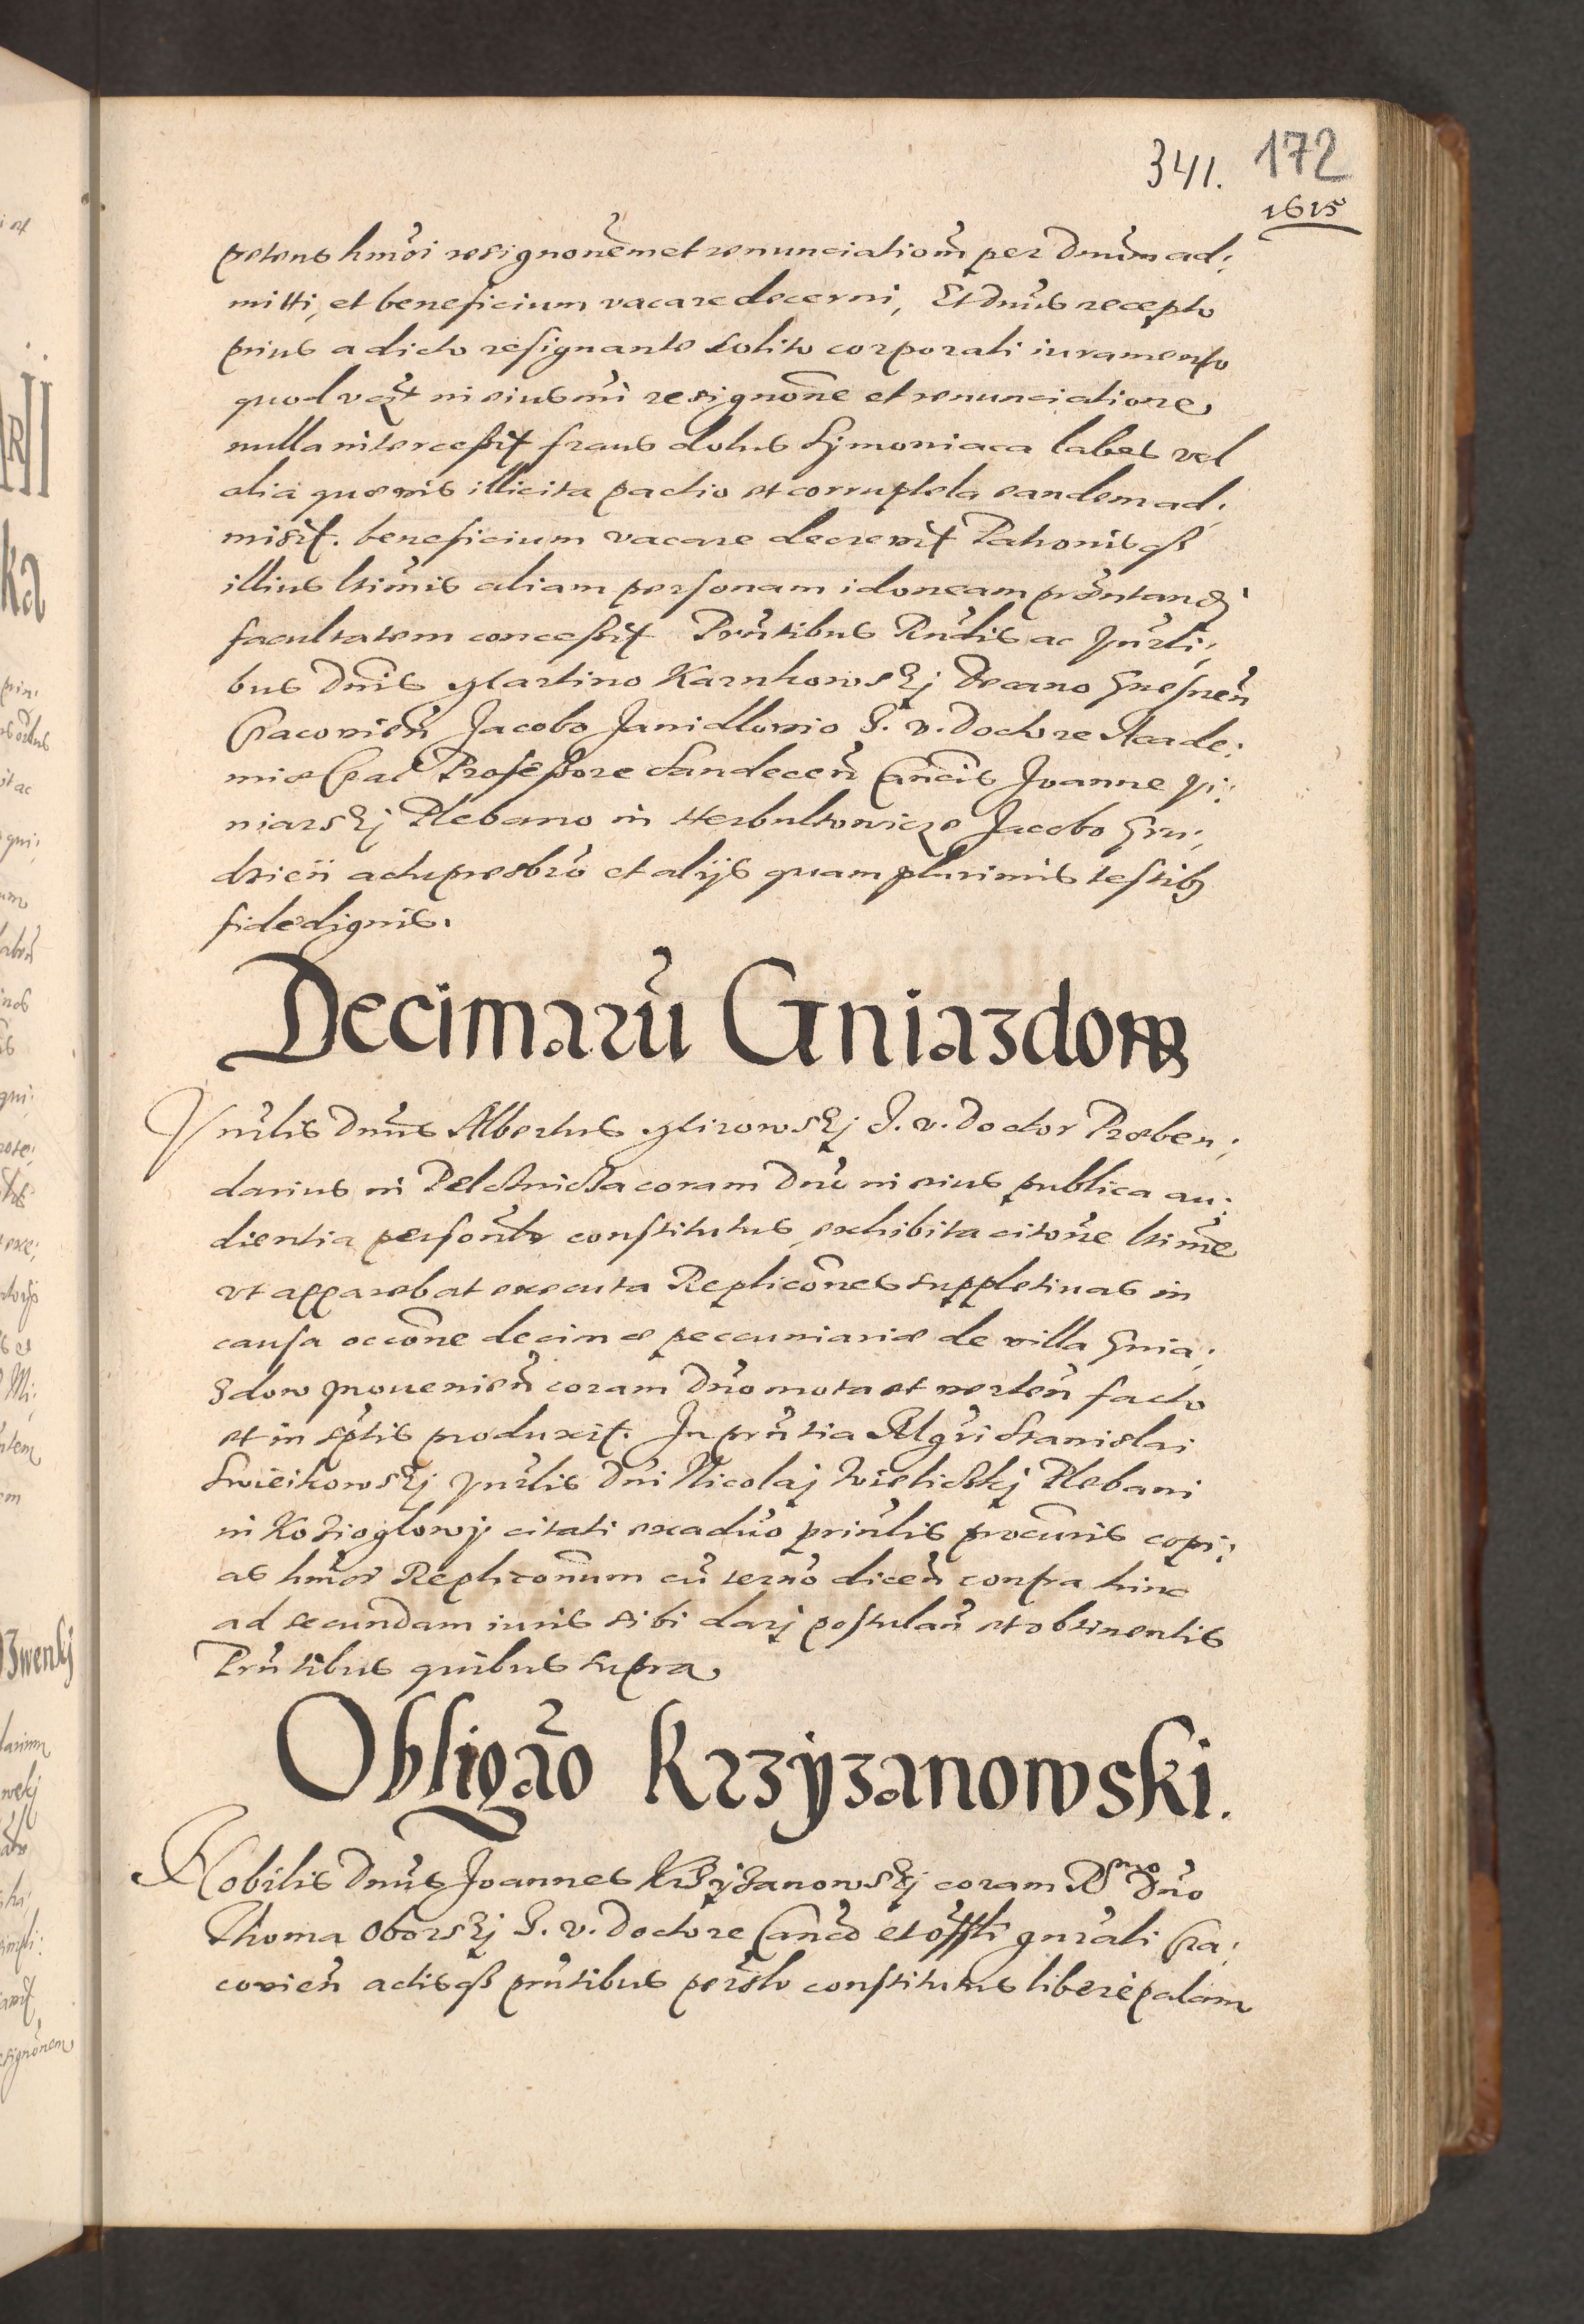 341. 172
1615
petens hmõi resignonẽm et renunciationẽ per Dnũm ad:
mitti, et beneficium vacare decerni, Et Dnũs recepto
prius a dicto resignante solito corporali iuramento
quod in eiusmõi resignonẽ et renunciatione
nulla intercessit fraus dolus Symoniaca labes vel
alia quævis illicita pactio et corruptela eandem ad:
misit. beneficium vacare decrevit Patronisqß
illius ltimis aliam personam idoneam præntandi
facultatem concessit Prñtibus Rndis ac Vnrli:
bus Dnis Martino Karnkowskj Decano Gnesneñ
Cracovieñ Jacobo Janidlovio J. v. Doctore Acade:
miæ Crac Professore Sandeceñ Cancis Joanne Pi:
niarskj Plebano in Herbultowice Jacobo Gru:
dricii actu presbrõ et alijs quam plurimis testibꝫ
fidedignis.
Decimarũ Gniazdow
Vnrlis Dnũs Albertus Mirowskj J. v. Doctor Præben:
darius in Pelcznicka coram Dnõ in eius publica au:
dientia personlr constitutus exhibita citonẽ ltime
vt apparebat executa Replicones suppletivas in
causa occone decimæ peccuniariæ de villa Gnia:
zdow provenieñ coram Dnõ mota et verteñ facto
et in sptis produxit. In prñtia Algri Stanislai
Swieikowskj Vnrlis Dni Nicolaj Wielickj Plebani
in Kozioglowj citati ex aduo prinlis procuris copi:
as hmõi Repliconum cũ termõ diceñ contra hinc
ad secundam iuris sibi darj postulañ et obtinentis
Prñtibus quibus supra
Obligão Krzyzanowski.
Nobilis Dnũs Joannes Krzyzanowskj coram Rdsmo Dnõ
Thoma Oborskj J. v. Doctore Cancõ et offli gnrali Cra:
covieñ actisqß prñtibus persłr constitutus libere palam